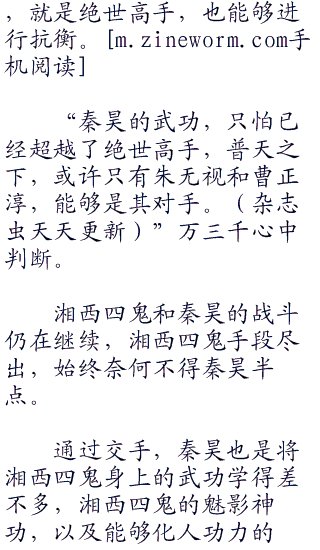 ，就是绝世高手，也能够进
行抗衡。[m.zineworm.com手
机阅读]
“秦昊的武功，只怕已
经超越了绝世高手，普天之
下，或许只有朱无视和曹正
淳，能够是其对手。（杂志
虫天天更新）”万三千心中
判断。
湘西四鬼和秦昊的战斗
仍在继续，湘西四鬼手段尽
出，始终奈何不得秦昊半
点。
通过交手，秦昊也是将
湘西四鬼身上的武功学得差
不多，湘西四鬼的魅影神
功，以及能够化人功力的